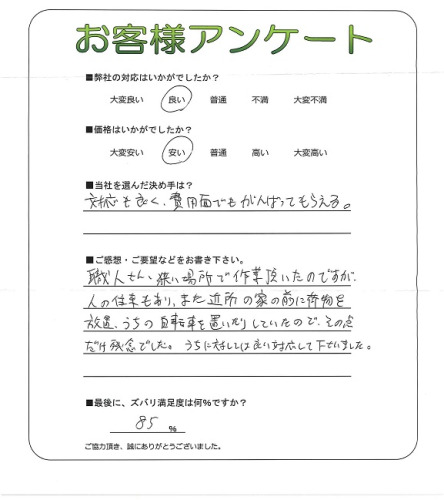 お客様アンケート
■弊社の対応はいかがでしたか?
大変良い 良い 普通 不満 大変不満
■価格はいかがでしたか?
大変安い 安い 普通 高い 大変高い
■当社を選んだ決め手は?
対応も良く、費用面でもがんばってもらえる。
■ご感想・ご要望などをお書き下さい。
職人さん、狭い場所で作業頂いたのですが、
人の往来もあり、また近所の家の前に荷物を
放置、うちの自転車を置いたりしていたので、その点
だけ残念でした。うちに対しては良い対応して下さいました。
■最後に、ズバリ満足度は何%ですか?
85 %
ご協力頂き、誠にありがとうございました。